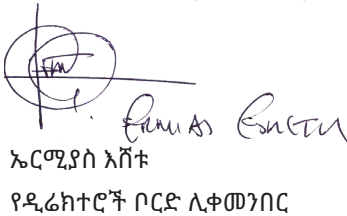 ERMIAS ESHETU
ኤርሚያስ እሸቱ
የዲሬክተሮች ቦርድ ሊቀመንበር